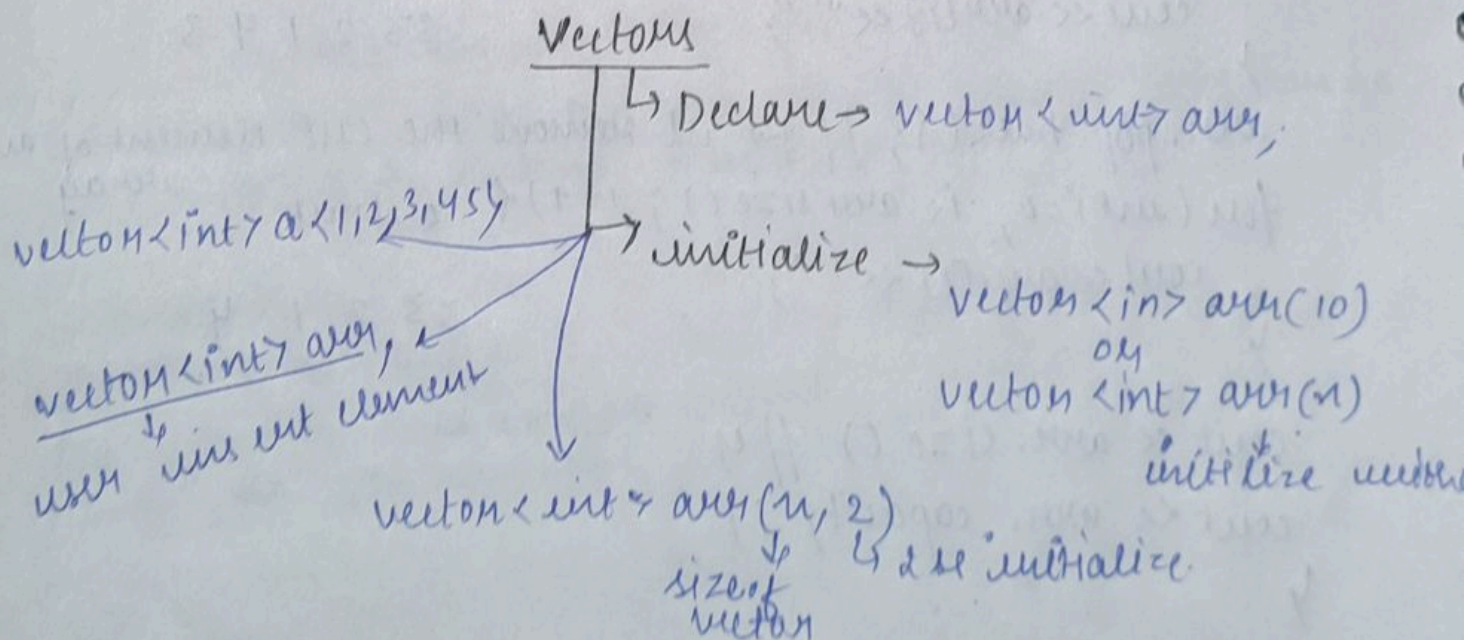 Vectors
Declare → vector <int> arr;
vector<int> a{1,2,3,4,5}
initialize →
vector <in> arr(10)
or
vector <int> arr(n)
initilize
vector<int> arr;
user insert element
vector<int> arr(n, 2)
size of
vector
2 se initialize.